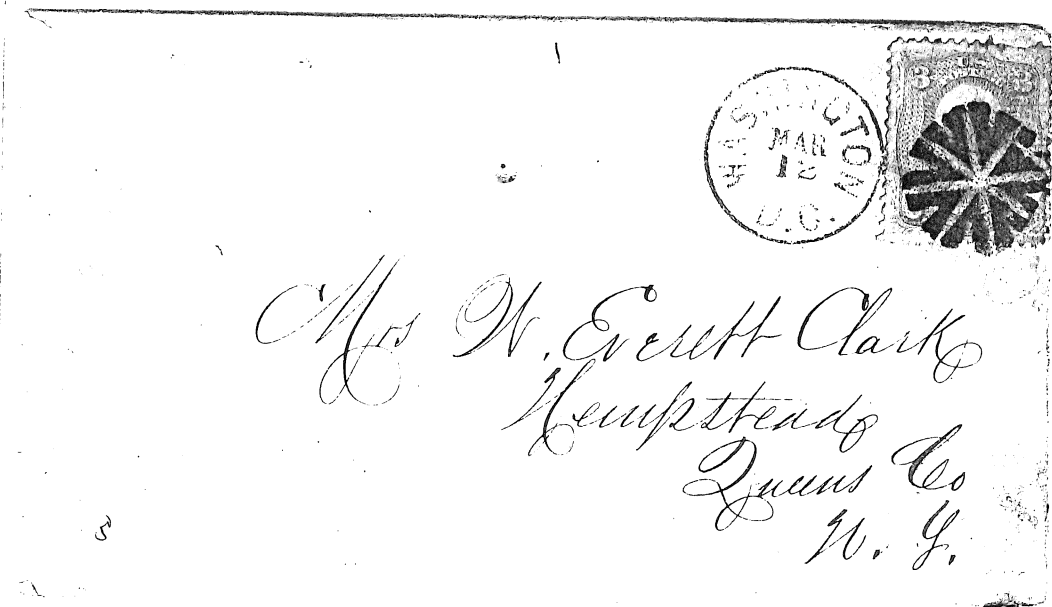 WASHINGTON
MAR
12
D.C.
U.S.
3 3
Mrs W. Everett Clark
Hempstead
Queens Co
N. Y.
5